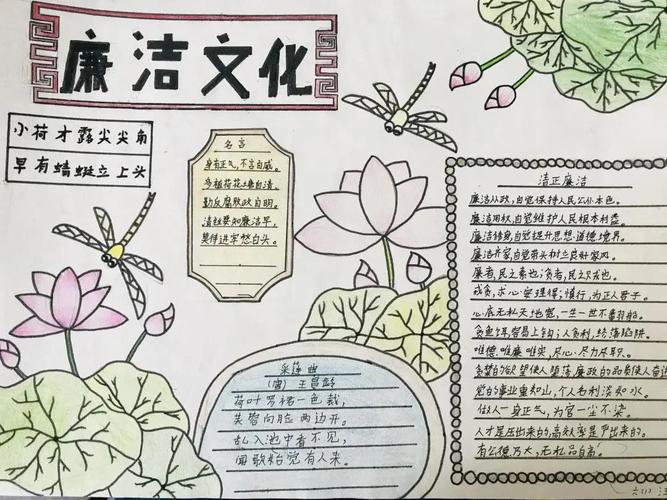 廉洁文化
小荷才露尖尖角
早有蜻蜓立上头
名言
身有正气,不言自威。
多植荷花塘自清,
勤反腐败政自明。
清莲要知廉洁早,
莫待进牢愁白头。
采莲曲
(唐) 王昌龄
荷叶罗裙一色裁,
芙蓉向脸两边开。
乱入池中看不见,
闻歌始觉有人来。
清正廉洁
廉洁从政,自觉保持人民公仆本色。
廉洁用权,自觉维护人民根本利益。
廉洁修身,自觉提升思想道德境界。
廉洁齐家,自觉带头树立良好家风。
廉者,民之表也;贪者,民之贼也。
戒贪,求心安理得;慎行,为正人君子。
心底无私天地宽,一生一世不翻船。
贪鱼饵,容易上钩;人贪利,终落陷阱。
唯德唯廉唯实,尽心尽力尽职。
贪婪的欲望使人堕落,廉政的品质使人奋进
党的事业重如山,个人名利淡如水。
做人一身正气,为官一尘不染。
人才是压出来的,高效率是严出来的。
有公德乃大,无私品自高。